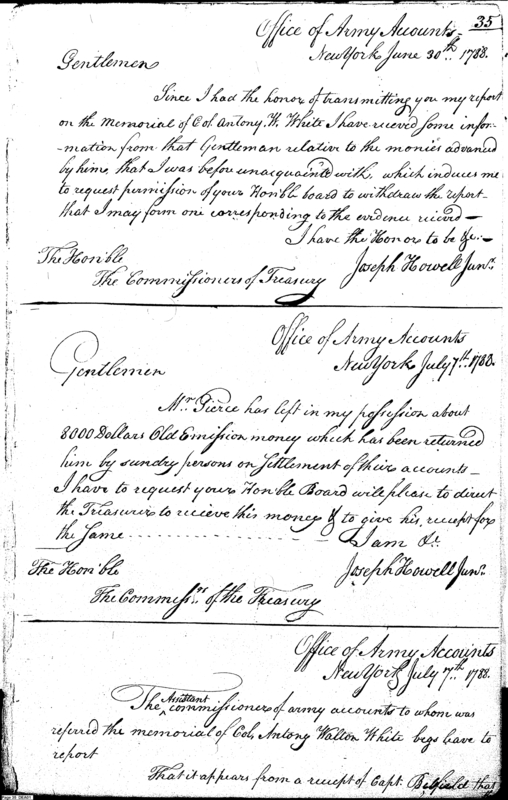 35
Office of Army Accounts
New York June 30th. 1788.
Gentlemen
Since I had the honor of transmitting you my report
on the Memorial of Col. Antony. W. White I have recieved some infor-
mation from that Gentleman relative to the monies advanced
by him, that I was before unacquainted with, which induces me
to request permission of your Hon'ble board to withdraw the report
that I may form one corresponding to the evidence recieved —
I have the Honor to be &c. —
The Hon'ble
Joseph Howell Junr.
The Commissioners of Treasury
Office of Army Accounts
New York July 7th. 1788.
Gentlemen
Mr. Pierce has left in my possession about
8000 Dollars Old Emission money which has been returned
him by sundry persons on settlement of their accounts —
I have to request your Hon'ble Board will please to direct
the Treasurer to recieve this money & to give his reciept for
the Same
I am &c.
The Hon'ble
Joseph Howell Junr.
The Commissrs. of the Treasury
Office of Army Accounts
New York July 7th. 1788.
The Assistant commissioner of army accounts to whom was
referred the memorial of Col. Antony Walton White begs leave to
report
That it appears from a reciept of Capt. Belfield that